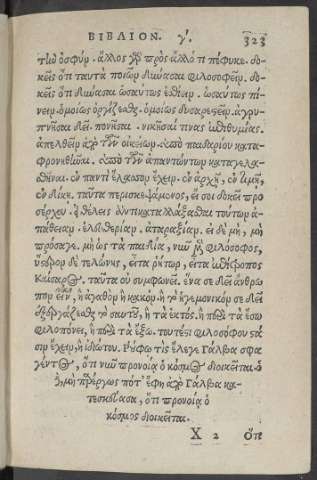 ΒΙΒΛΙΟΝ. γ'. 323
τὴν ὀσφύν. ἄλλος γὰρ πρὸς ἄλλό τι πέφυκε. δο-
κεῖς ὅτι ταυτὰ ποιῶν δύνασαι φιλοσοφεῖν. δο-
κεῖς ὅτι δύνασαι ὡσαύτως ἐσθίειν. ὡσαύτως πί-
νειν. ὁμοίως ὀργίζεσθαι. ὁμοίως δυσαρεςεῖν. ἀγρυ-
πνῆσαι δεῖ. πονῆσαι. νικῆσαί τινας ἐπιθυμίας.
ἀπελθεῖν ἀπὸ τῶν οἰκείων. ὑπὸ παιδαρίου κατα-
φρονηθῆναι. ὑπὸ τῶν ἀπαντώντων καταγελα-
σθῆναι. ἐν παντὶ ἔλαττον ἔχειν. ἐν ἀρχῇ, ἐν τιμῇ,
ἐν δίκῃ. ταῦτα περισκεψάμενος, εἴ σοι δοκεῖ προ
σέρχου. εἰ θέλεις ἀντικαταλλάξασθαι τούτων ἀ-
πάθειαν. ἐλευθερίαν. ἀταραξίαν. εἰ δὲ μὴ, μὴ
πρόσαγε. μὴ ὡς τὰ παιδία, νῦν μὲν φιλόσοφος,
ὕστερον δὲ τελώνης, εἶτα ῥήτωρ, εἶτα ἐπίτροπος
Καίσαρος. ταῦτα οὐ συμφωνεῖ. ἕνα σε δεῖ ἄνθρω
πον εἶναι, ἢ ἀγαθὸν ἢ κακόν. ἢ τὸ ἡγεμονικόν σε δεῖ
ἐξεργάζεσθαι τὸ σαυτοῦ, ἢ τὰ ἐκτός. ἢ περὶ τὰ ἔσω
φιλοπονεῖν, ἢ περὶ τὰ ἔξω. τουτέςι φιλοσόφου τά
ξιν ἔχειν, ἢ ἰδιώτου. Ρούφῳ τὶς ἔλεγε Γάλβα σφα
γέντος, ὅτι νῦν προνοίᾳ ὁ κόσμος διοικεῖται. ὁ
δὲ, μὴ παρέργως ποτ' ἔφη ἀπὸ Γάλβα κα-
τεσκεύασα, ὅτι προνοίᾳ ὁ
κόσμος διοικεῖται.
Χ 2 ὅτι